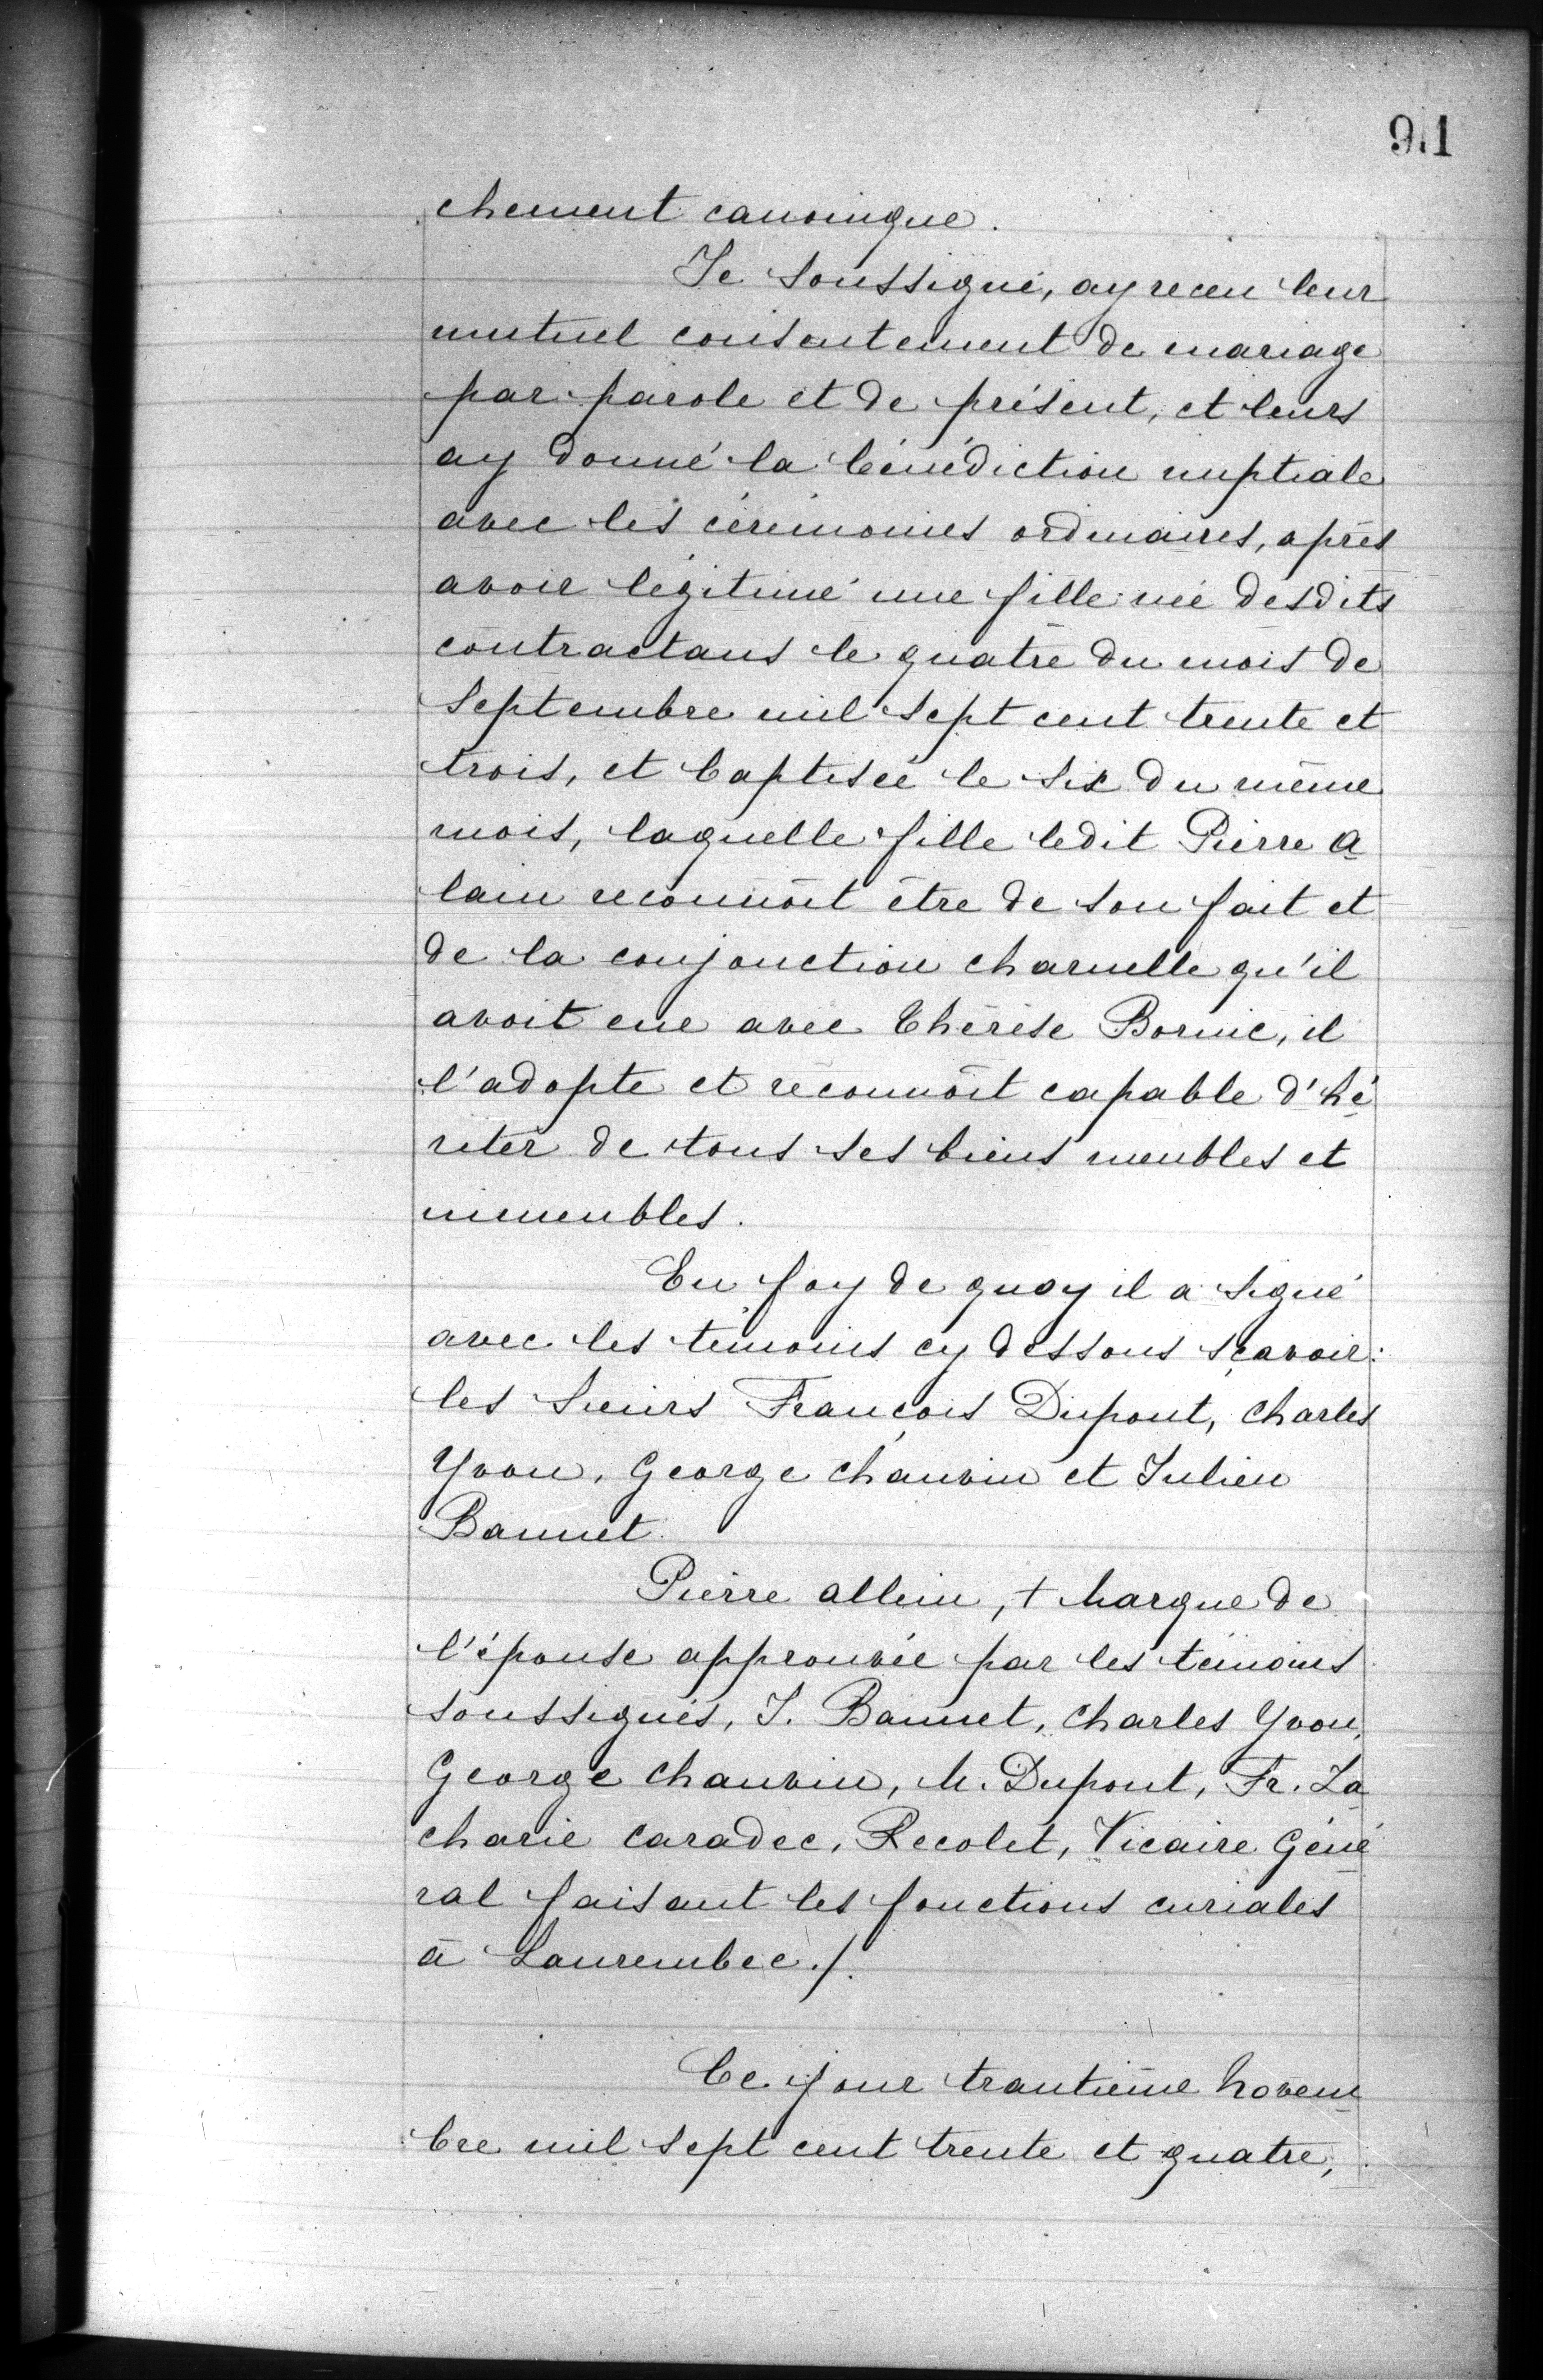 91
chement canonique.
Je soussigné, ay receu leur
mutuel consentement de mariage
par parole et de présent, et leurs
ay donné la bénédiction nuptiale
avec les cérémonies ordinaires, après
avoir légitimé une fille née desdits
contractans le quatre du mois de
Septembre mil sept cent trente et
trois, et baptisée le six du même
mois, laquelle fille ledit Pierre A
lain reconnoît être de son fait et
de la conjonction charnelle qu'il
avoit eue avec Thérèse Bornic, il
l'adopte et reconnoît capable d'hé
riter de tous ses biens meubles et
immeubles.
En foy de quoy il a signé
avec les témoins cy dessous sçavoir:
les Sieurs François Dupont, Charles
Yvon, George Chauvin et Julien
Bannet.
Pierre allein, + Marque de
l'épouse approuvée par les témoins
soussignés, J. Bannet, Charles Yvon,
George Chauvin, M. Dupont, Fr. Za
charie Caradec, Recolet, Vicaire Géné
ral faisant les fonctions curiales
à Laurembec./.
Ce jour trantième Novem
bre mil sept cent trente et quatre,